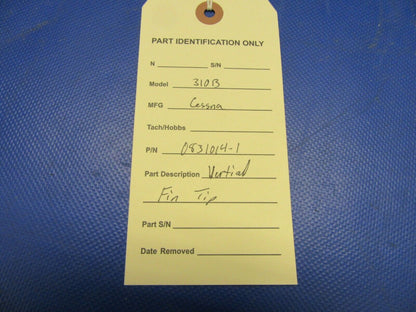 PART IDENTIFICATION ONLY
N S/N
Model 310B
MFG Cessna
Tach/Hobbs
P/N 0831014-1
Part Description Vertical
Fin Tip
Part S/N
Date Removed